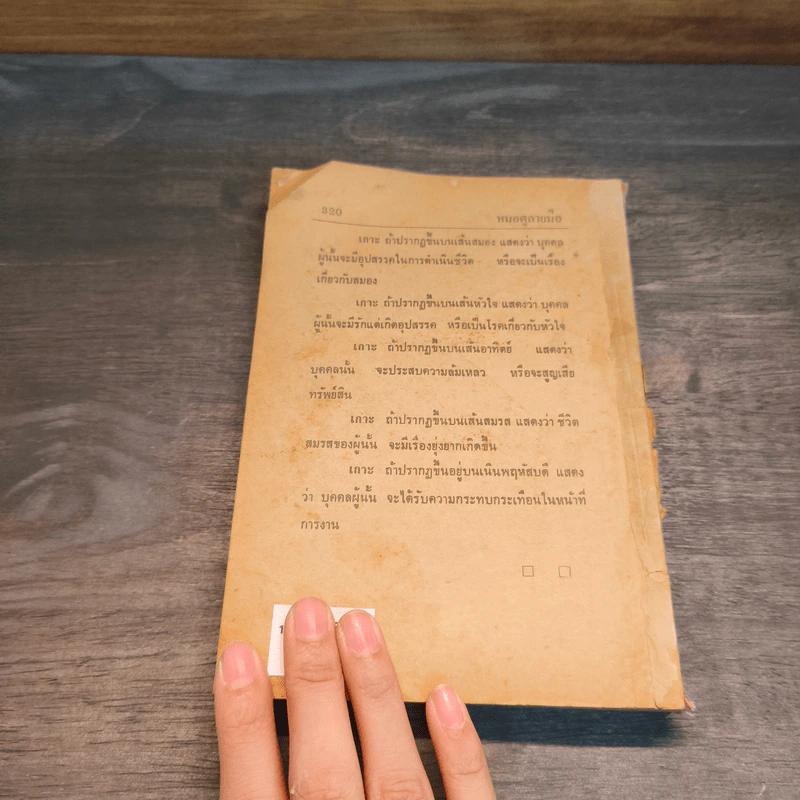 320 หมอดูลายมือ
เกาะ ถ้าปรากฏขึ้นบนเส้นสมอง แสดงว่า บุคคล
ผู้นั้นจะมีอุปสรรคในการดำเนินชีวิต หรือจะเป็นเรื่อง
เกี่ยวกับสมอง
เกาะ ถ้าปรากฏขึ้นบนเส้นหัวใจ แสดงว่า บุคคล
ผู้นั้นจะมีรักแต่เกิดอุปสรรค หรือเป็นโรคเกี่ยวกับหัวใจ
เกาะ ถ้าปรากฏขึ้นบนเส้นอาทิตย์ แสดงว่า
บุคคลนั้น จะประสบความล้มเหลว หรือจะสูญเสีย
ทรัพย์สิน
เกาะ ถ้าปรากฏขึ้นบนเส้นสมรส แสดงว่า ชีวิต
สมรสของผู้นั้น จะมีเรื่องยุ่งยากเกิดขึ้น
เกาะ ถ้าปรากฏขึ้นอยู่บนเนินพฤหัสบดี แสดง
ว่า บุคคลผู้นั้น จะได้รับความกระทบกระเทือนในหน้าที่
การงาน